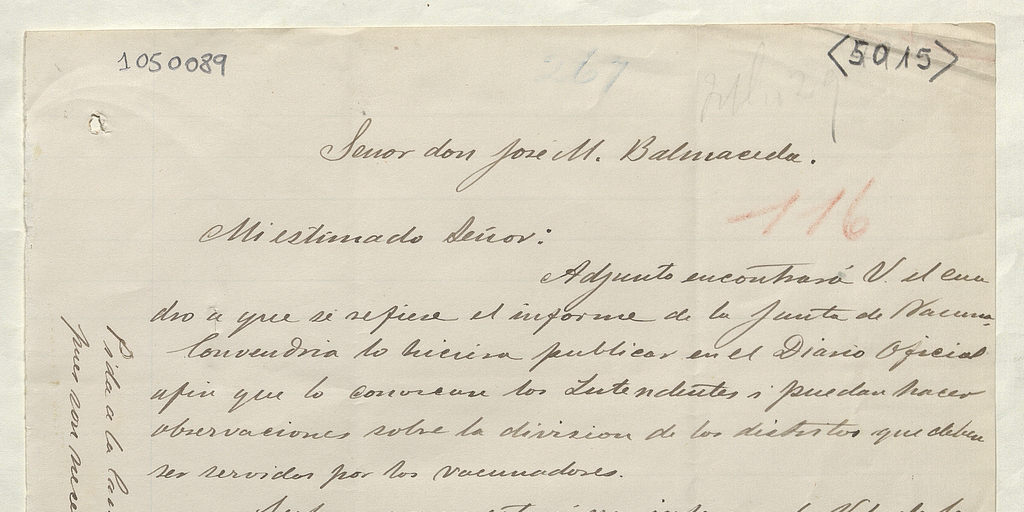 1050089
<5015>
Señor don José M. Balmaceda.
116
Mi estimado Señor:
Adjunto encontrará V. el cua
dro a que se refiere el informe de la Junta de Vacuna.
Convendria lo hiciera publicar en el Diario Oficial
afin que lo conozcan los Intendentes i puedan hacer
observaciones sobre la division de los distritos que deben
ser servidos por los vacunadores.
Pida a la
pues son